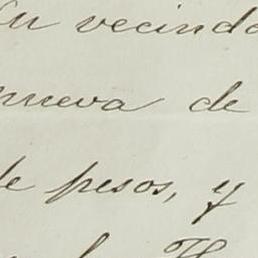 su vecinda
nueva de
de pesos, y